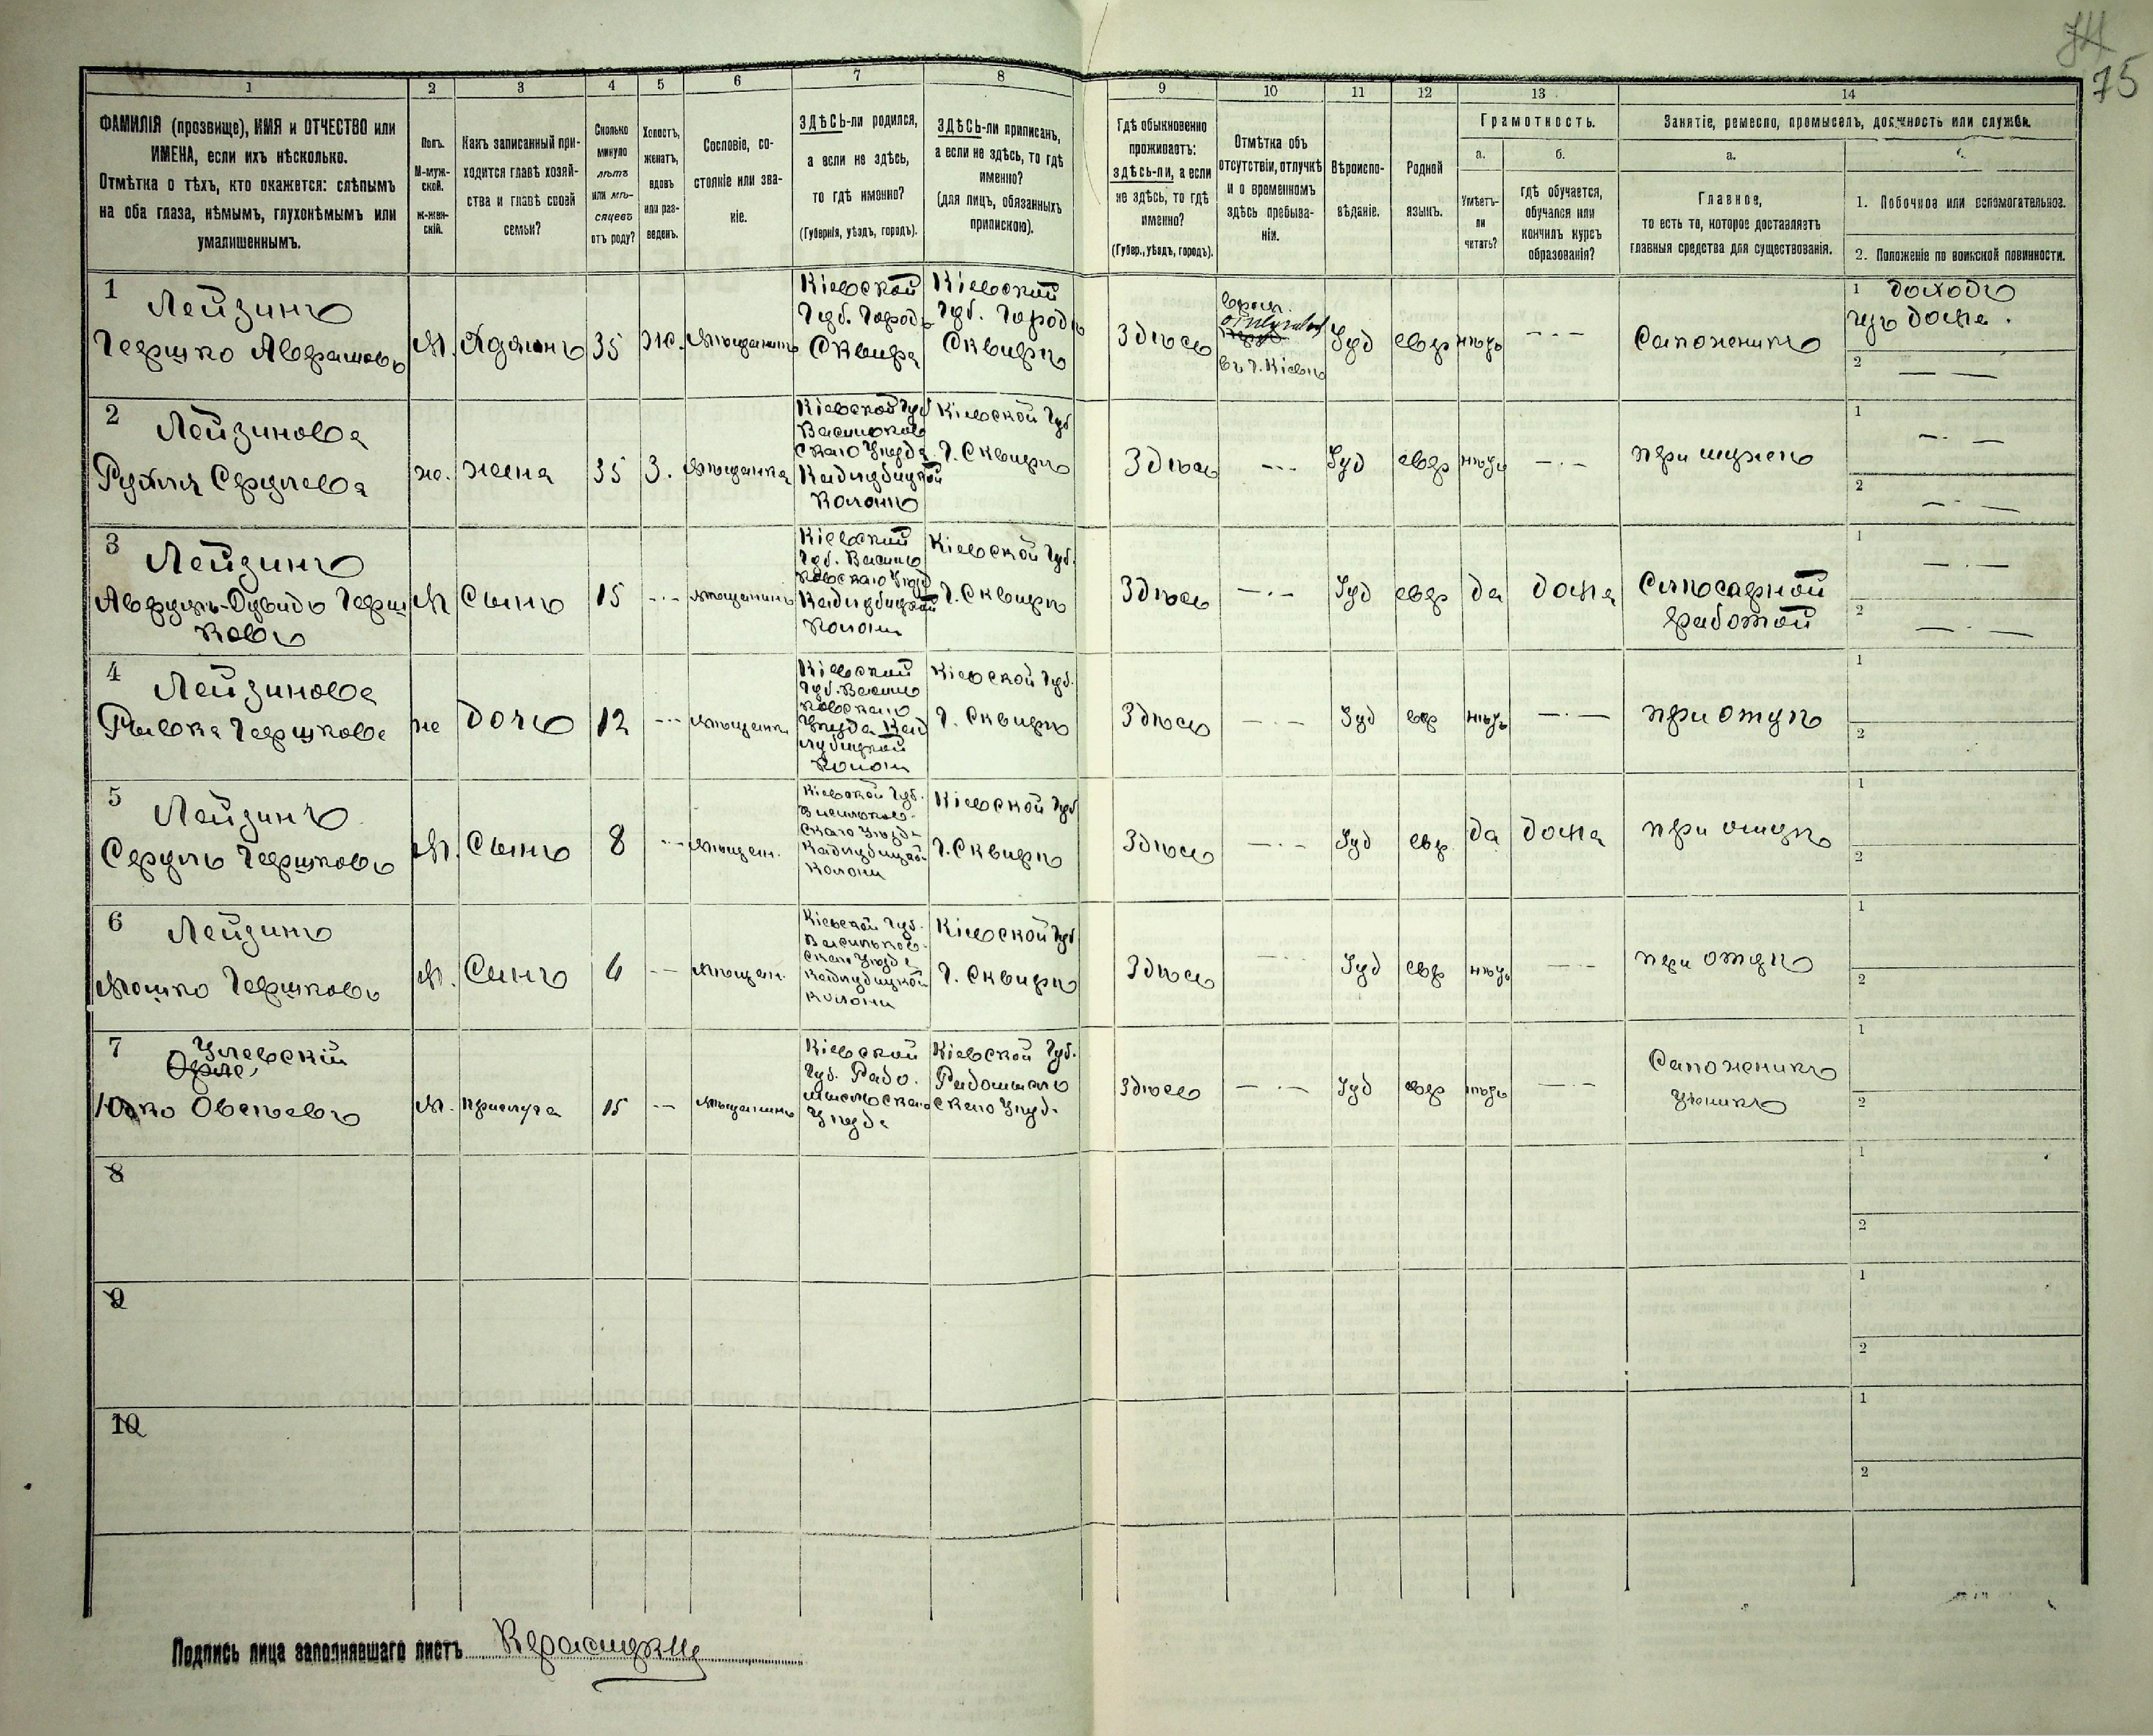 75
1 2 3 4 5 6 7 8 9 10 11 12 13 14
ФАМИЛІЯ (прозвище), ИМЯ и ОТЧЕСТВО или
ИМЕНА, если ихъ нѣсколько.
Отмѣтка о тѣхъ, кто окажется: слѣпымъ
на оба глаза, нѣмымъ, глухонѣмымъ или
умалишеннымъ.
Полъ.
М-муж-
ской.
ж-жен-
скій.
Какъ записанный при-
ходится главѣ хозяй-
ства и главѣ своей
семьи?
Сколько
минуло
лѣтъ
или мѣ-
сяцевъ
отъ роду?
Холостъ,
женатъ,
вдовъ
или раз-
веденъ.
Сословіе, со-
стояніе или зва-
ніе.
ЗДѢСЬ-ли родился,
а если не здѣсь,
то гдѣ именно?
(Губернія, уѣздъ, городъ).
ЗДѢСЬ-ли приписанъ,
а если не здѣсь, то гдѣ
именно?
(для лицъ, обязанныхъ
припискою).
Гдѣ обыкновенно
проживаетъ:
здѣсь-ли, а если
не здѣсь, то гдѣ
именно?
(Губер., уѣздъ, городъ).
Отмѣтка объ
отсутствіи, отлучкѣ
и о временномъ
здѣсь пребыва-
ніи.
Вѣроиспо-
вѣданіе.
Родной
языкъ.
Грамотность.
а.
Умѣетъ-
ли
читать?
б.
гдѣ обучается,
обучался или
кончилъ курсъ
образованія?
Занятіе, ремесло, промыселъ, должность или служба.
а.
Главное,
то есть то, которое доставляетъ
главныя средства для существованія.
1. Побочное или вспомогательное.
2. Положеніе по воинской повинности.
1
Лейзинъ
Гершко Аврамовъ
М.
Хозяинъ
35
Ж.
Мѣщанинъ
Кіевской
Губ. Городъ
Сквира
Кіевский
Губ. Городъ
Сквирѣ
Здѣсь
въ г. Кіевѣ
Іуд
евр
нѣтъ
— · —
Сапожникъ
1 доходъ
2 — —
2
Лейзинова
Серулева
ж.
жена
35
З.
Мѣщанка
Кіевской Губ
Васильков
скаго Уѣзда
Колонѣ
Кіевской Губ
Г. Сквирѣ
Здѣсь
— · —
Іуд
евр
нѣтъ
— · —
при мужѣ
1 — · —
2 — · —
3
Лейзинъ
Гершковъ
М
Сынъ
15
— · —
Мѣщанинъ
Кіевский
Губ. Василь
ковскаго Уѣзд
Колони
Кіевской Губ.
Г. Сквирѣ
Здѣсь
— · —
Іуд
евр
да
дома
работой
1 — · —
2 — · —
4
Лейзинова
Рывка Гершкова
ж
дочь
12
— · —
Мѣщанка
Кіевский
Губ. Василь
ковскаго
Уѣзда
Колони
Кіевской Губ.
Г. Сквирѣ
Здѣсь
— · —
Іуд
евр
нѣтъ
— · —
при отцѣ
1
2
5
Лейзинъ
Серуль Гершковъ
М.
Сынъ
8
— · —
Мѣщан.
Кіевской Губ.
Васильков-
скаго Уѣзда
Колони
Кіевской Губ
Г. Сквирѣ
Здѣсь
— · —
Іуд
евр
да
дома
при отцѣ
1
2
6
Лейзинъ
Мошко Гершковъ
М.
Сынъ
6
— —
Мѣщан.
Кіевской Губ.
Васильков-
скаго Уѣзда
Колони
Кіевской Губ
Г. Сквирѣ
Здѣсь
— · —
Іуд
евр
нѣтъ
— · —
при отцѣ
1
2
7
Овсѣевъ
М.
прислуга
15
—
Мѣщанинъ
Кіевской
Губ. Радо.
мысльскаго
Уѣзда
Кіевской Губ.
Радомысль
скаго Уѣзд.
Здѣсь
— · —
Іуд
евр
нѣтъ
— · —
Сапожникъ
Ученикъ
1
2
8
1
2
9
1
2
10
1
2
Подпись лица заполнявшаго листъ